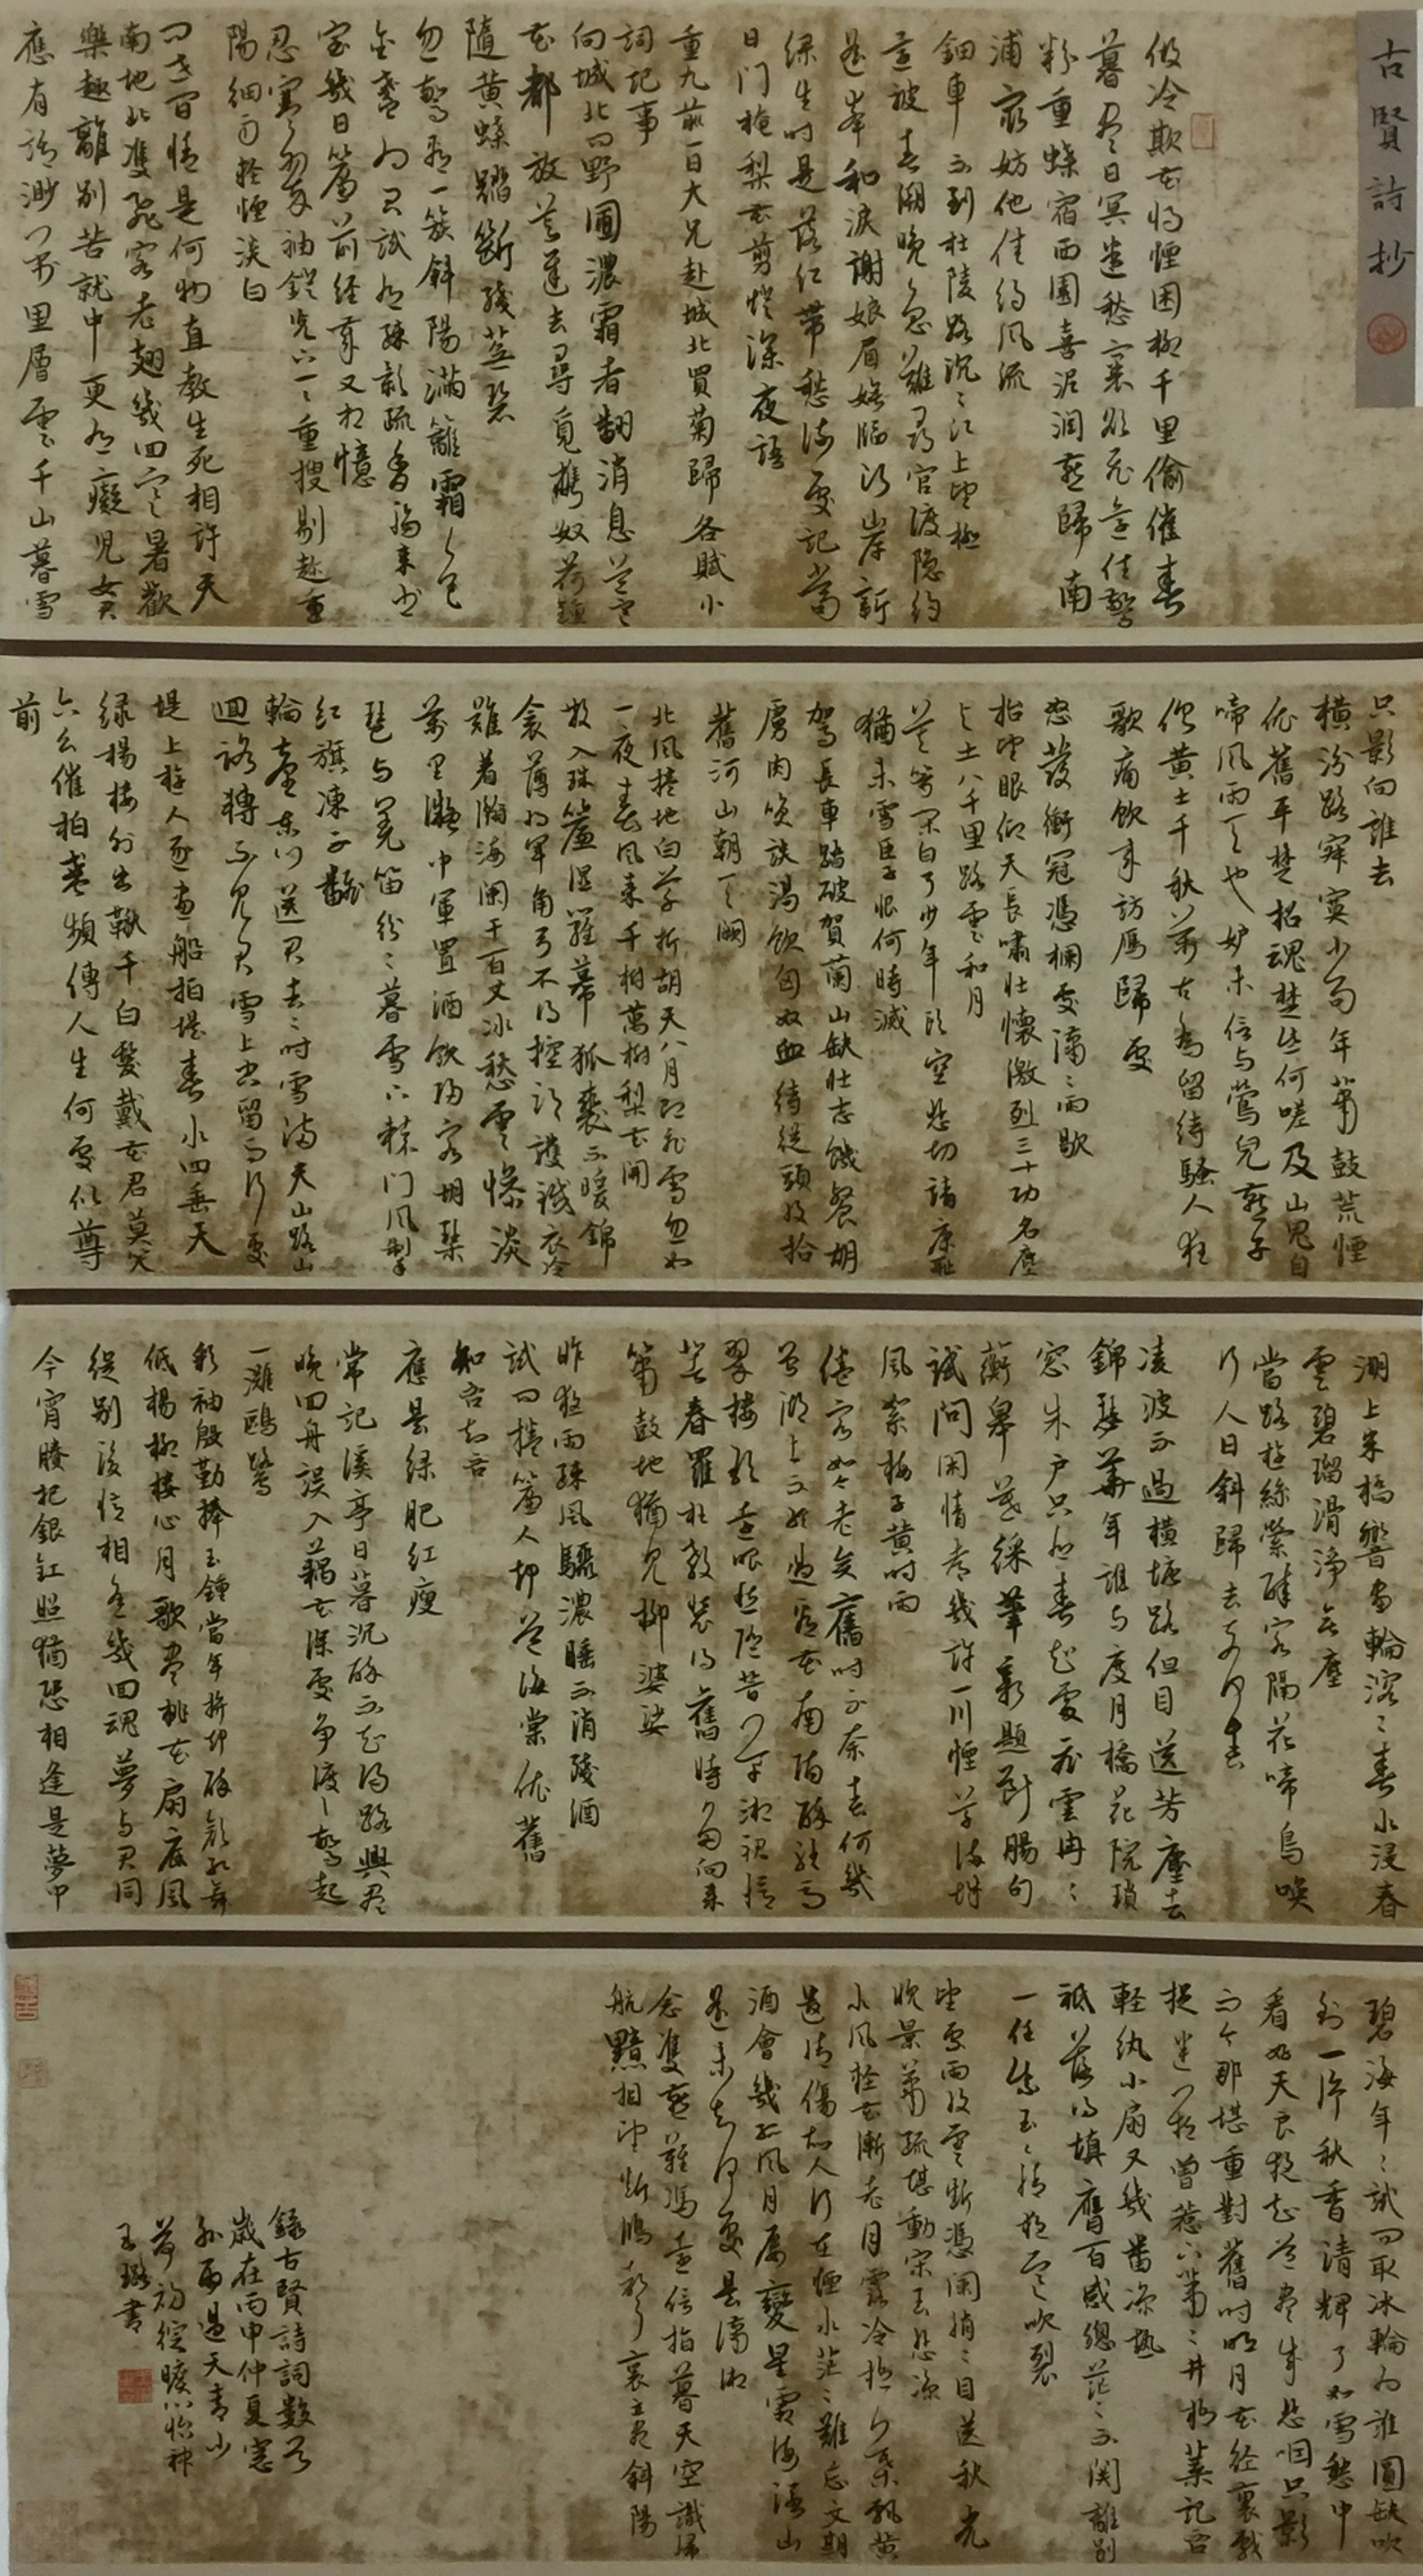 古賢詩抄
做冷欺花将煙困柳千里偷催春
暮尽日冥迷愁裏欲飛還住驚
粉重蝶宿西園喜泥润燕歸南
浦最妨他佳约风流
鈿車不到杜陵路沉〻江上望極
還被春潮晚急難尋官渡隐约
遥峯和淚謝娘眉嫵臨断岸新
绿生时是落红带愁流處記當
日门掩梨花剪燈深夜語
重九前一日大兄赴城北買菊歸各賦小
詞記事
向城北问野圃濃霜者翻消息
花都放芒鞋去尋覓携奴荷鍤
隨黄蝶踏断残芜碧
忽驚看一簇斜陽满籬霜
为君試看疏影疏香归来
幾日簾前经幕又相憶
忍寒翠袖
重搜剔趁重
陽细雨輕煙淡白
问世间情是何物直教生死相許天
南地北雙飛客老翅幾回寒暑歡
樂趣離别苦就中更有癡兒女君
應有語渺万里層雲千山暮雪
只影向誰去
横汾路寂寞当年簫鼓荒煙
依舊平楚招魂楚些何嗟及山鬼自
啼风雨天也妒未信与鶯兒燕子
俱黄土千秋萬古為留待騷人狂
歌痛飲来訪雁歸處
怒髮衝冠憑欄處瀟〻雨歇
抬望眼仰天長嘯壮懷激烈三十功名塵
与土八千里路雲和月
莫等闲白了少年头空悲切靖康恥
猶未雪臣子恨何時滅
驾長車踏破賀蘭山缺壮志饑餐胡
虜肉笑談渴飲匈奴血待従頭收拾
舊河山朝天闕
北风捲地白草折胡天八月即飛雪忽如
一夜春风来千樹萬樹梨花開
散入珠簾湿羅幕狐裘不暖錦
衾薄将軍角弓不得控都護鐵衣冷
難着瀚海闌干百丈冰愁雲惨淡
萬里凝中軍置酒飲归客胡琴
琵琶与羌笛纷〻暮雪下轅门风掣
红旗凍不翻
輪臺東门送君去〻时雪满天山路山
迴路轉不見君雪上空留马行處
堤上遊人逐畫船拍堤春水四垂天
绿楊楼外出鞦千白髮戴花君莫笑
六幺催拍盞頻傳人生何處似尊
前
湖上朱橋響画輪溶〻春水浸春
雲碧瑠滑净无塵
當路遊絲縈醉客隔花啼鳥唤
行人日斜歸去奈何春
凌波不過横塘路但目送芳塵去
錦瑟華年誰与度月橋花院瑣
窓朱户只有春知處飛雲冉〻
蘅皋暮綵筆新題断腸句
試問闲情都幾許一川煙草满城
风絮梅子黄时雨
倦客如今老矣舊时不奈春何幾
曾湖上不經過看花南陌醉駐马
翠楼歌遠眼愁随芳草湘裙憶
著春羅枉教装得舊時多向来
簫鼓地猶見柳婆娑
昨夜雨疎风驟濃睡不消残酒
試问捲簾人却道海棠依舊
知否知否
應是绿肥红瘦
常記溪亭日暮沉醉不知归路興尽
晚回舟誤入藕花深處争渡〻驚起
一灘鷗鷺
彩袖殷勤捧玉鍾當年拚却醉颜红舞
低楊柳楼心月歌尽桃花扇底风
從别後憶相逢幾回魂夢与君同
今宵賸把銀釭照猶恐相逢是夢中
碧海年〻試问取冰輪为誰圓缺吹
到一片秋香清輝了如雪愁中
看好天良夜知道尽成悲咽只影
而今那堪重對舊时明月花经裏戲
捉迷藏曾惹下蕭〻井梧葉記否
輕紈小扇又幾番凉熱
祗落得填膺百感總茫〻不関離别
一任紫玉无情夜寒吹裂
望處雨收雲断憑闌悄〻目送秋光
晚景蕭疏堪動宋玉悲凉
水风輕蘋花漸老月露冷梧葉飘黄
遣情傷故人何在煙水茫〻難忘文期
酒會幾孤风月屢變星霜海阔山
遥未知何處是瀟湘
念雙燕難憑遠信指暮天空識归
航黯相望断鸿声裏立尽斜陽
録古賢詩詞数首
歲在丙申仲夏窓
外雨過天青小
荷初绽曠心怡神
玉璐書